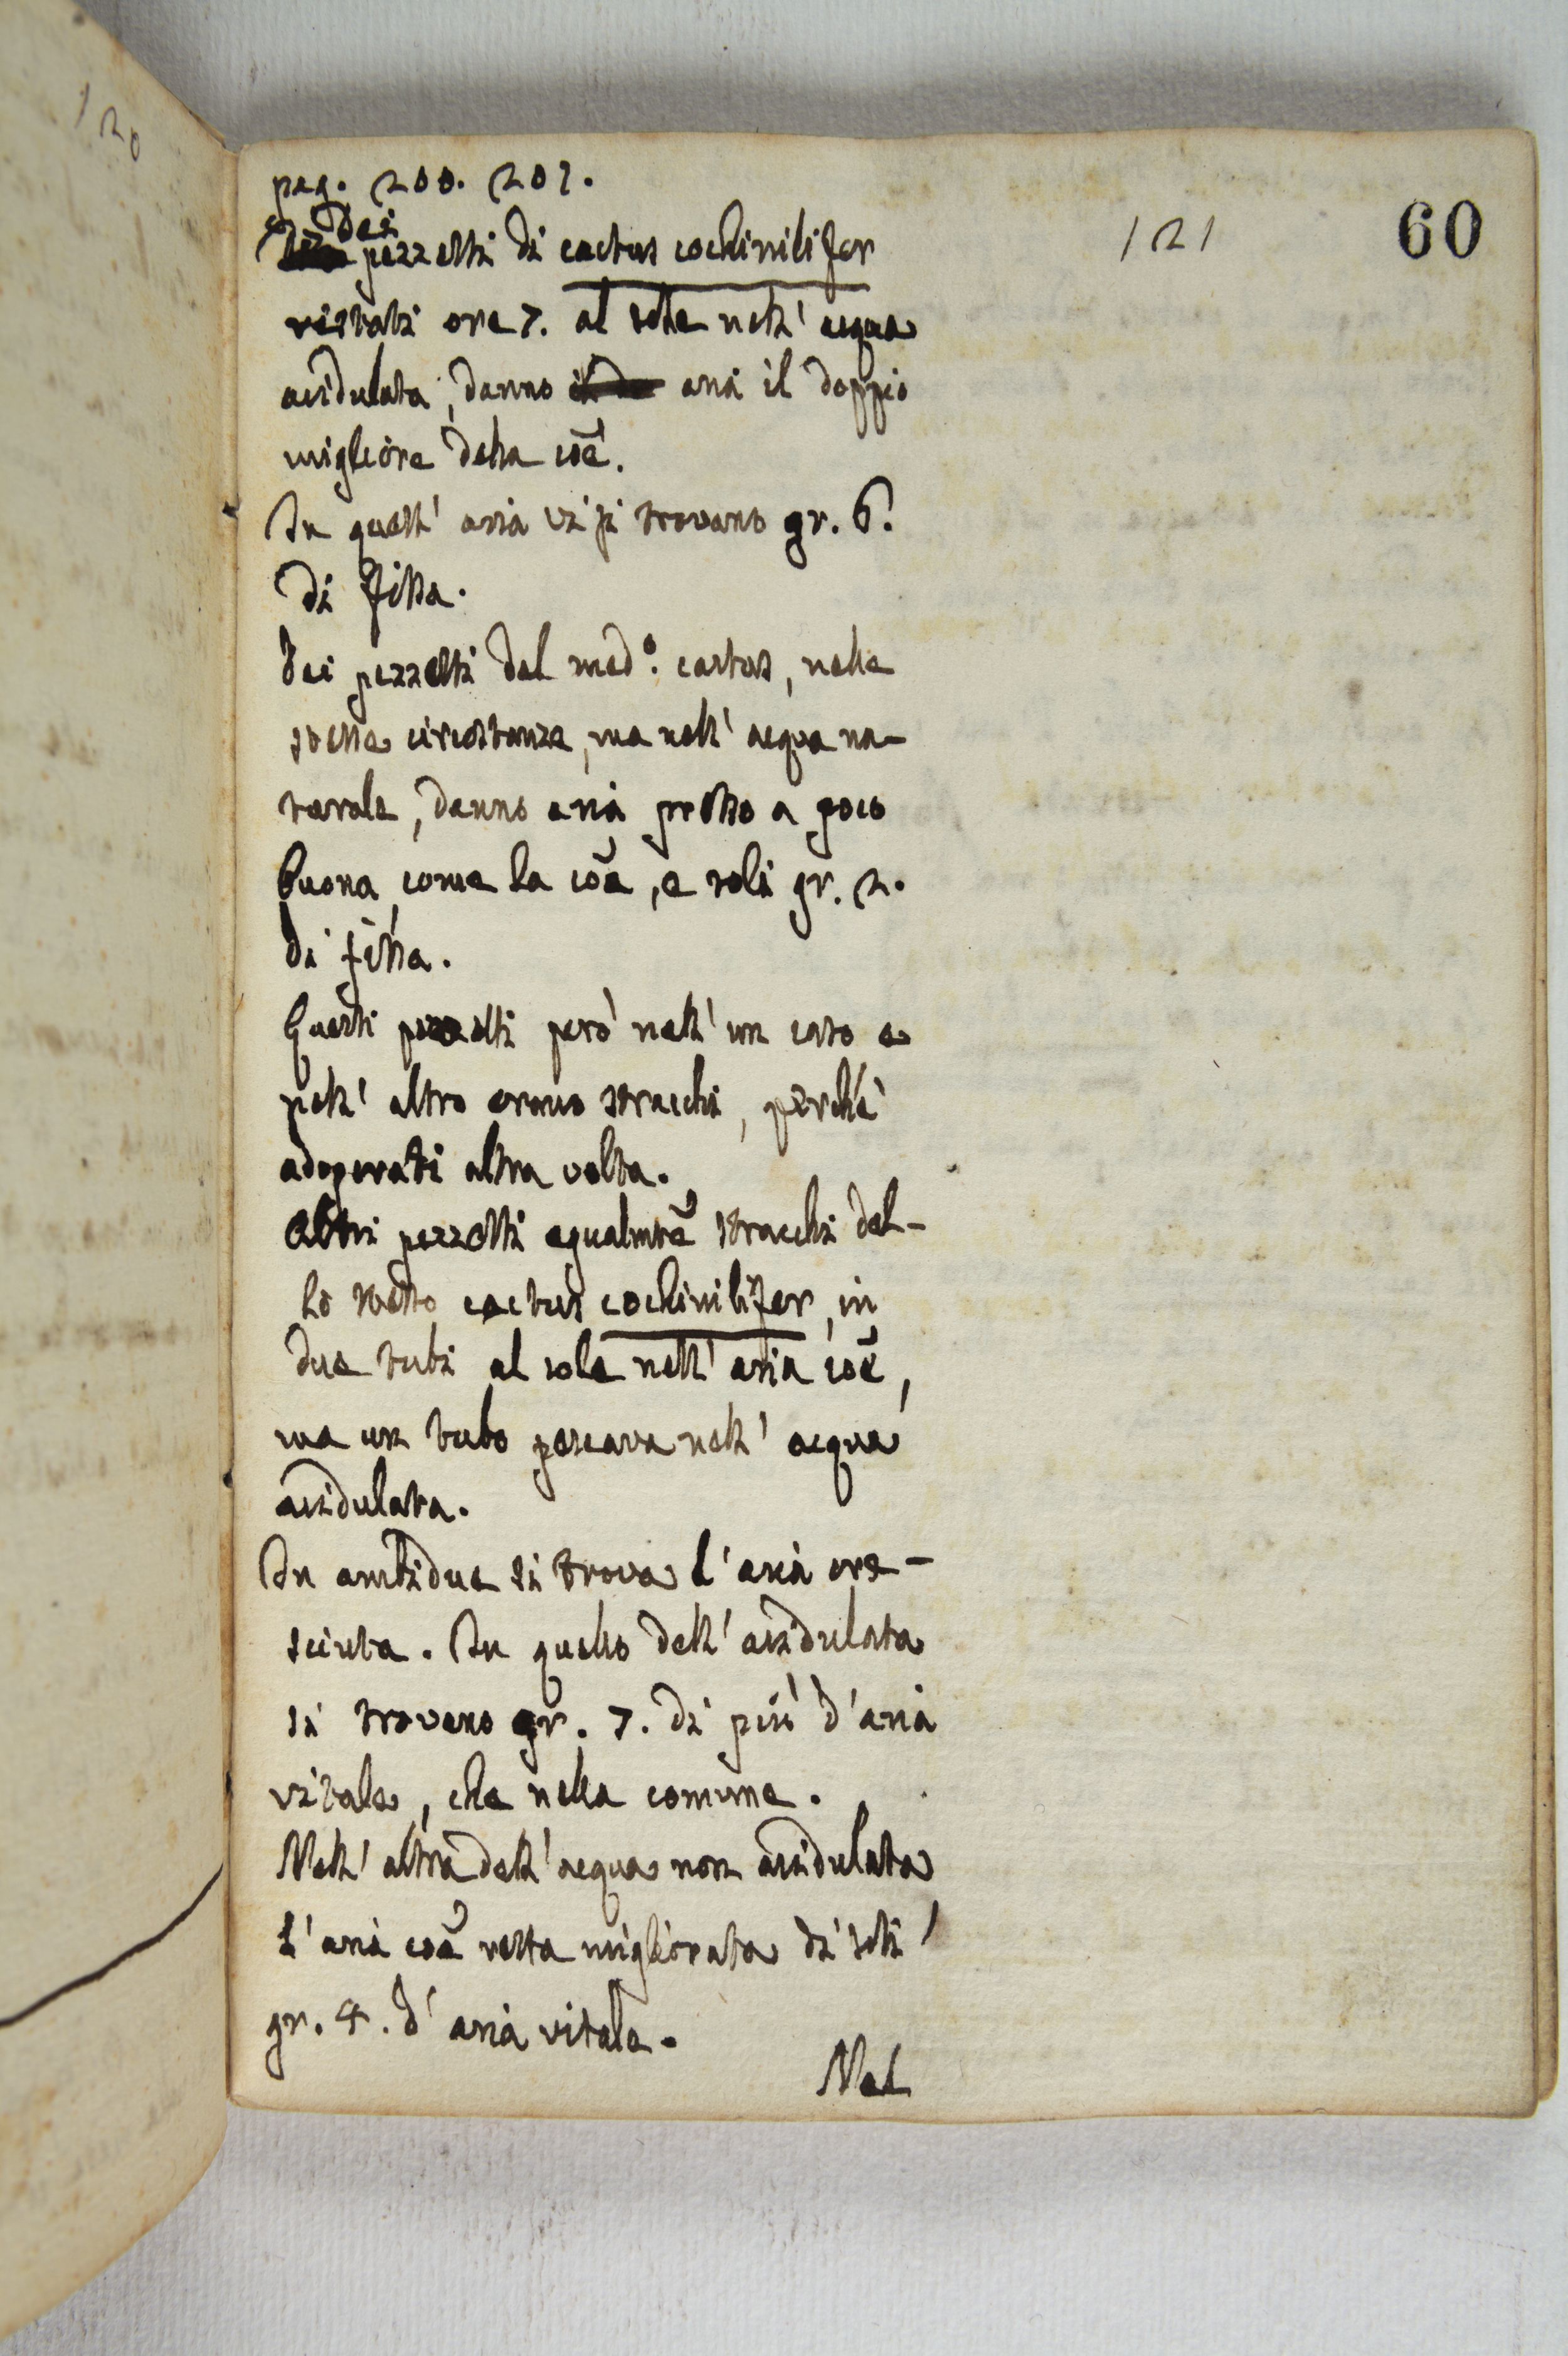 120
121
60
pag. 200. 201.
Dei
pezzetti di cactus cochinilifer
restati ore 7. al sole nell' acqua
acidulata, danno aria il doppio
migliore della coe.
In quest' aria vi si trovano gr. 6.
di fissa.
Dei pezzetti del med.º cactus, nelle
stesse circostanze, ma nell' acqua na-
turale, danno aria presso a poco
buona come la coe, e soli gr. 2.
di fissa.
Questi pezzetti però nell' un caso e
nell' altro erano stracchi, perchè
adoperati altra volta.
Altri pezzetti egualmte stracchi del-
lo stesso cactus cochinilifer, in
due tubi al sole nell' aria coe,
ma un tubo pescava nell' acqua
acidulata.
In ambidue si trova l' aria cre-
sciuta. In quello dell' acidulata
si trovano gr. 7. di più d' aria
vitale, che nella comune.
Nell' altra dell' acqua non acidulata
l' aria coe resta migliorata di soli
gr. 4. d' aria vitale.
Nel